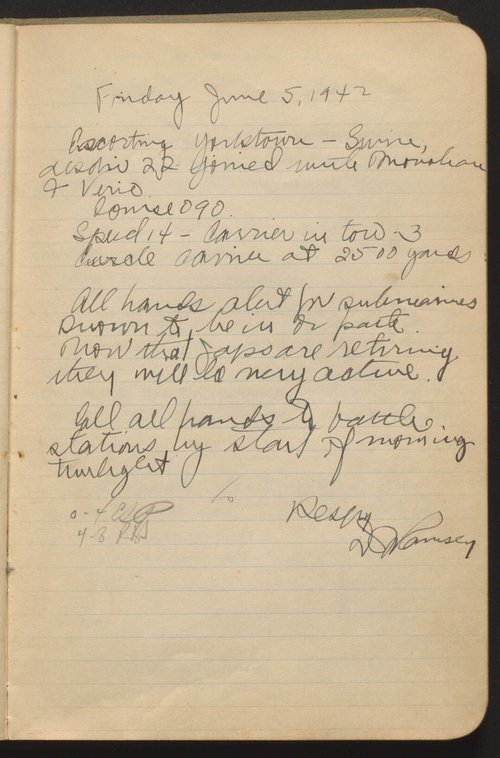 Friday June 5, 1942
Escorting Yorktown - Gwin,
desdiv 22 joined with Monahan
& Vireo
Course 090
Speed 14 - Carrier in tow - 3
Circle carrier at 2500 yards
All hands alert for submarines
known to be in or
Now that Japs are retiring
they will be very active.
Call all hands to battle
stations by start of morning
twilight
0-4
4-8
Respy
D Ramsey